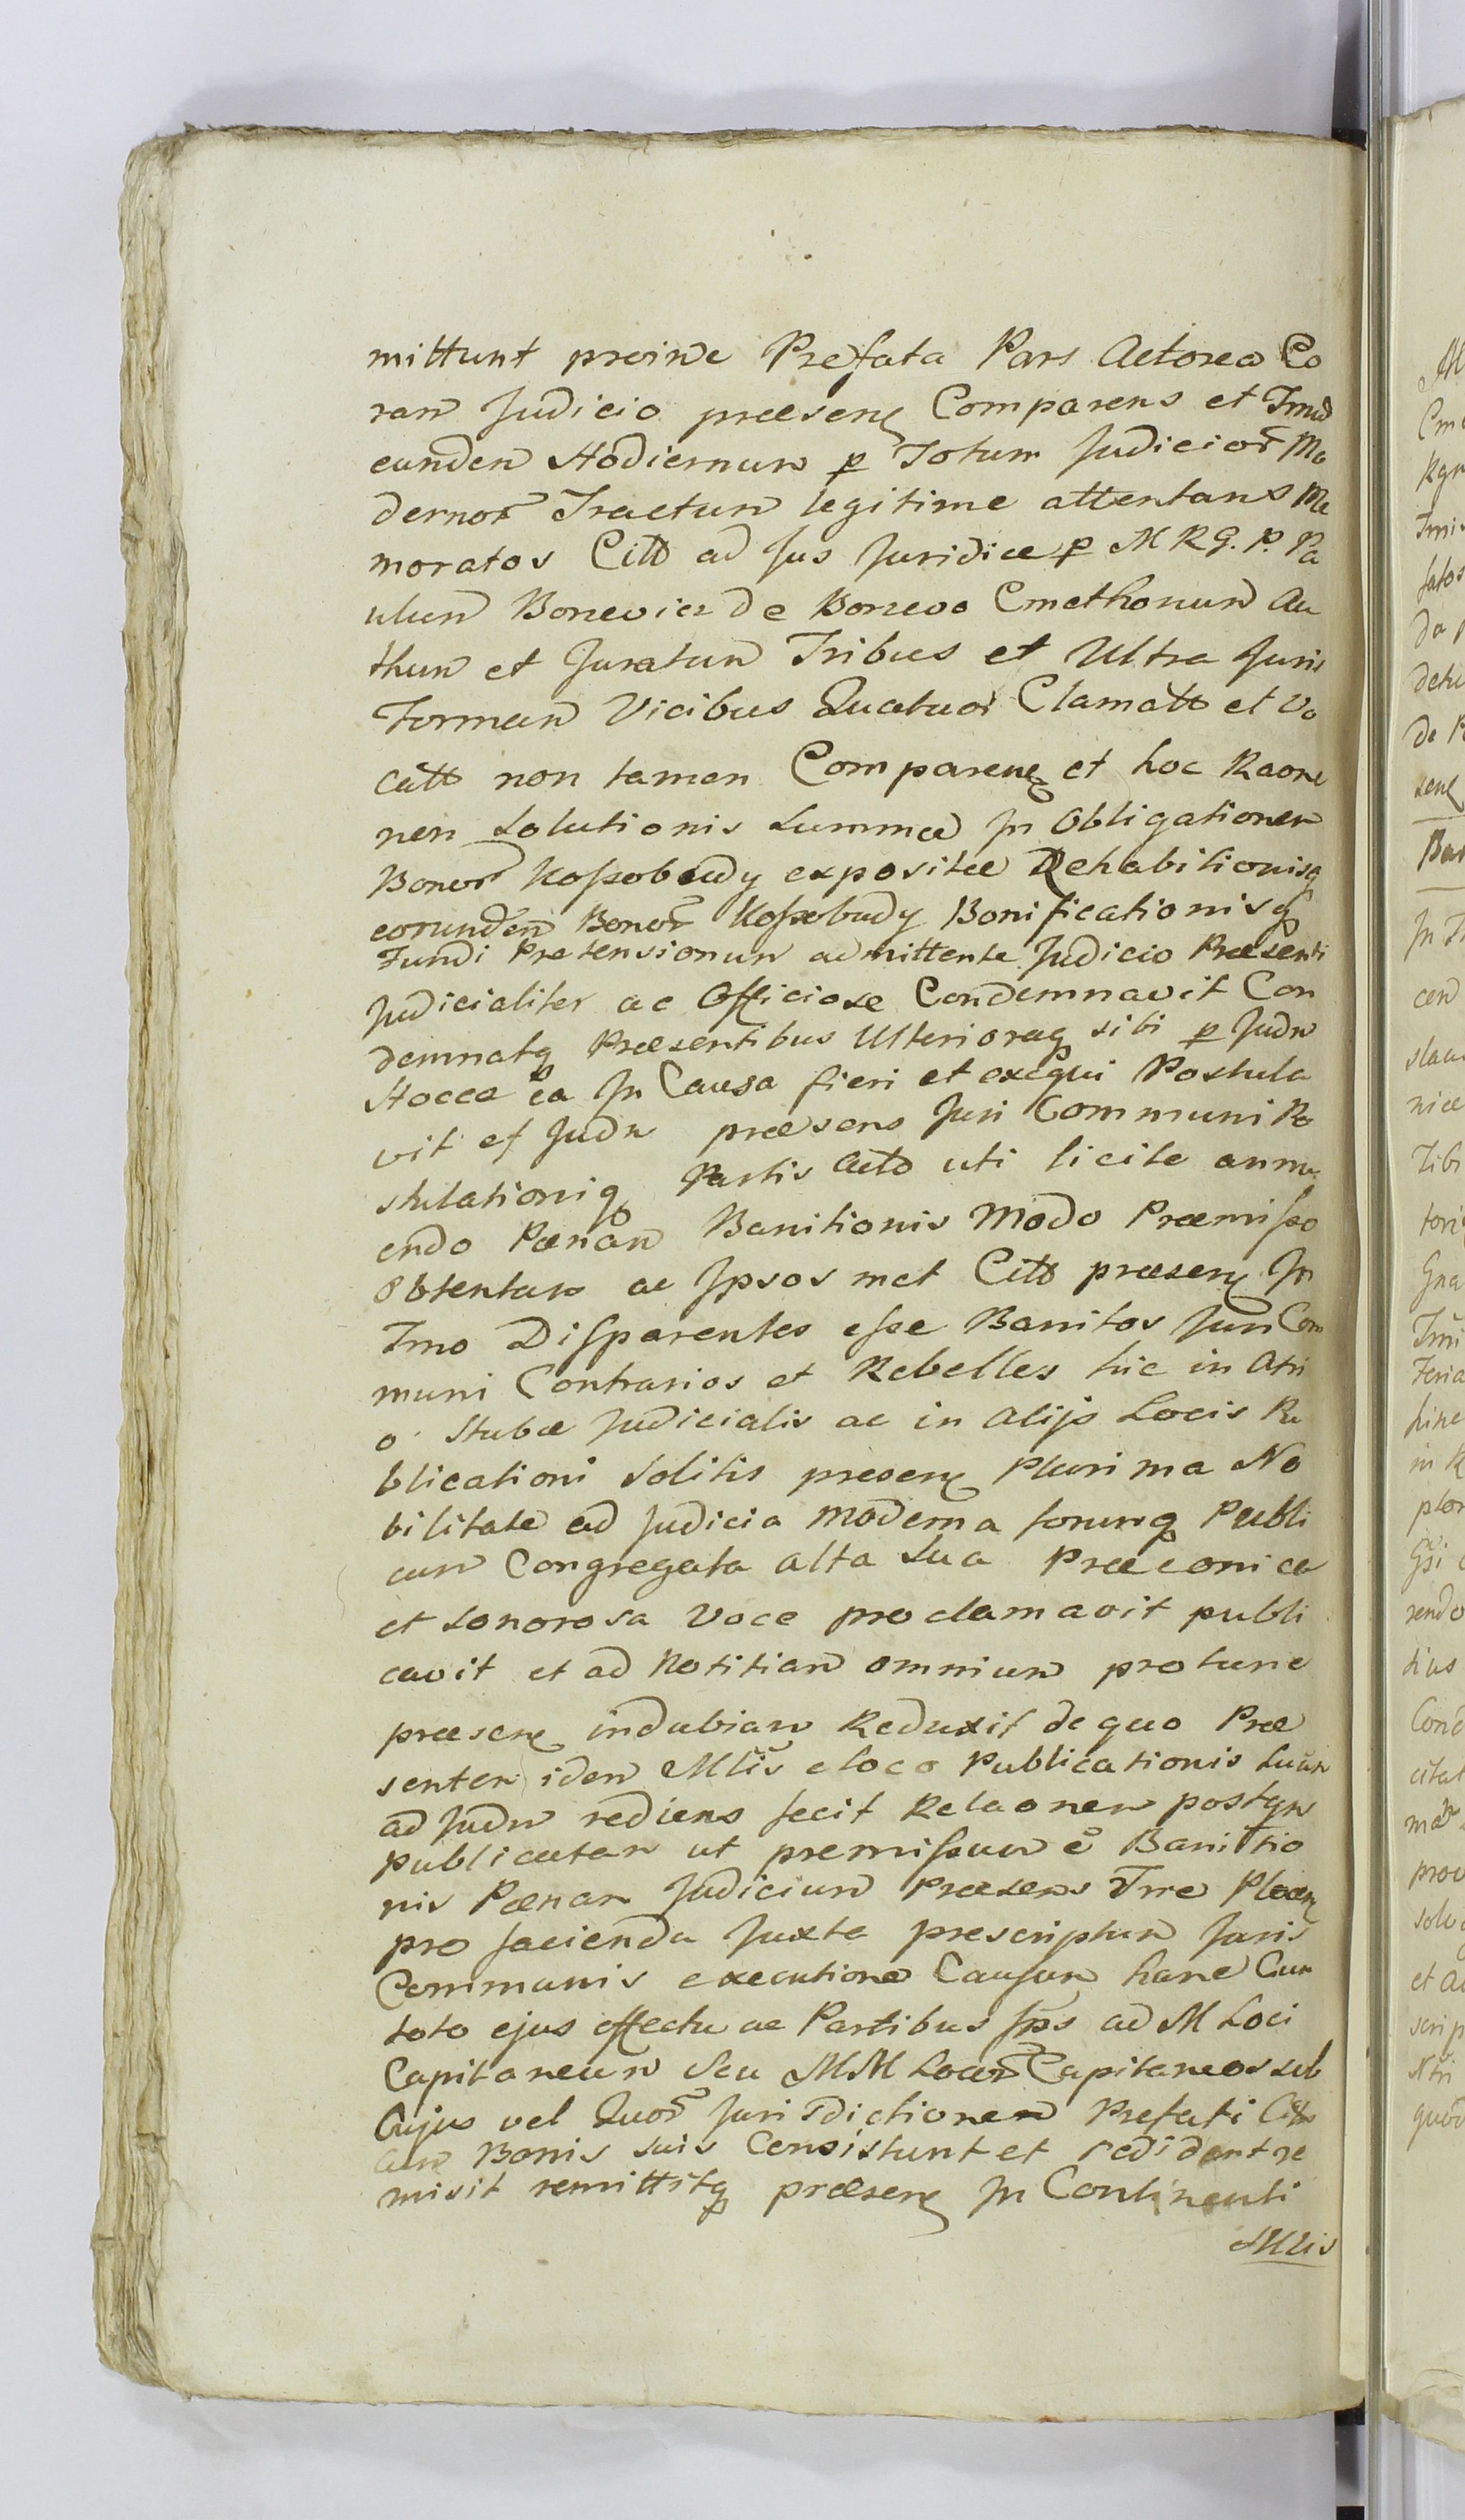 mittunt proinde Præfata Pars Actorea Co
ram Judicio præsenę Comparens et Tmū
eundem Hodiernum p Totum Judicior Mo
dernor Tractum legitime attentans Me
moratos Citt ad Jus Juridice p M R G. P. Pa
ulum Boneviez de Borzewo Cmethonum Au
thum et Juratum Tribus et Ultra Juris
Formam Vicibus Quatuor Clamatt et Vo
catt non tamen Comparenę et hoc Raone
non Solutionis Summæ In Obligationem
Bonor Kossobudy expositæ Rehabitionisq
eorundem Bonor Kossobudy Bonificationisq
Fundi Pretensionum admittente Judicio Præsenti
Judicialiter ac Officiose Condemnavit Con
demnatq Præsentibus Ulterioraq sibi p Judm
Hocce ea In Causa fieri et exequi Postula
vit et Judm præsens Juri Communi Po
stulationiq Partis Acto uti licite annu
endo Pænam Banitionis Modo Præmisso
Obtentam ac Ipsos met Citt præsenę In
Tmo Disparentes esse Banitos Juri Com
muni Contrarios et Rebelles hic in Atri
o Stubæ Judicialis ac in Alijs Locis Pu
blicationi Solitis presenę Plurima No
bilitate ad Judicia moderna forumq Publi
cum Congregata alta Sua Præconica
et Sonorosa Voce proclamavit publi
cavit et ad Notitiam omnium protunc
præsenę indubiam Reduxit de quo Præ
sentem idem Mlis e loco Publicationis Suam
ad Judm rediens fecit Relaonem postqm
publicatam ut premissum e Banitio
nis Pænam Judicium Præsens Trre Plocenę
pro facienda Juxta prescriptum Juris
Communis executione Causam hanc Cum
toto ejus effectu ac Partibus Ips ad M Loci
Capitaneum Seu MM Locor Capitaneos sub
Cujus vel Quor Jurisdictionem Prefati Citt
cum Bonis suis Consistunt et resident re
misit remittitq præsenę In Continenti
Mlis